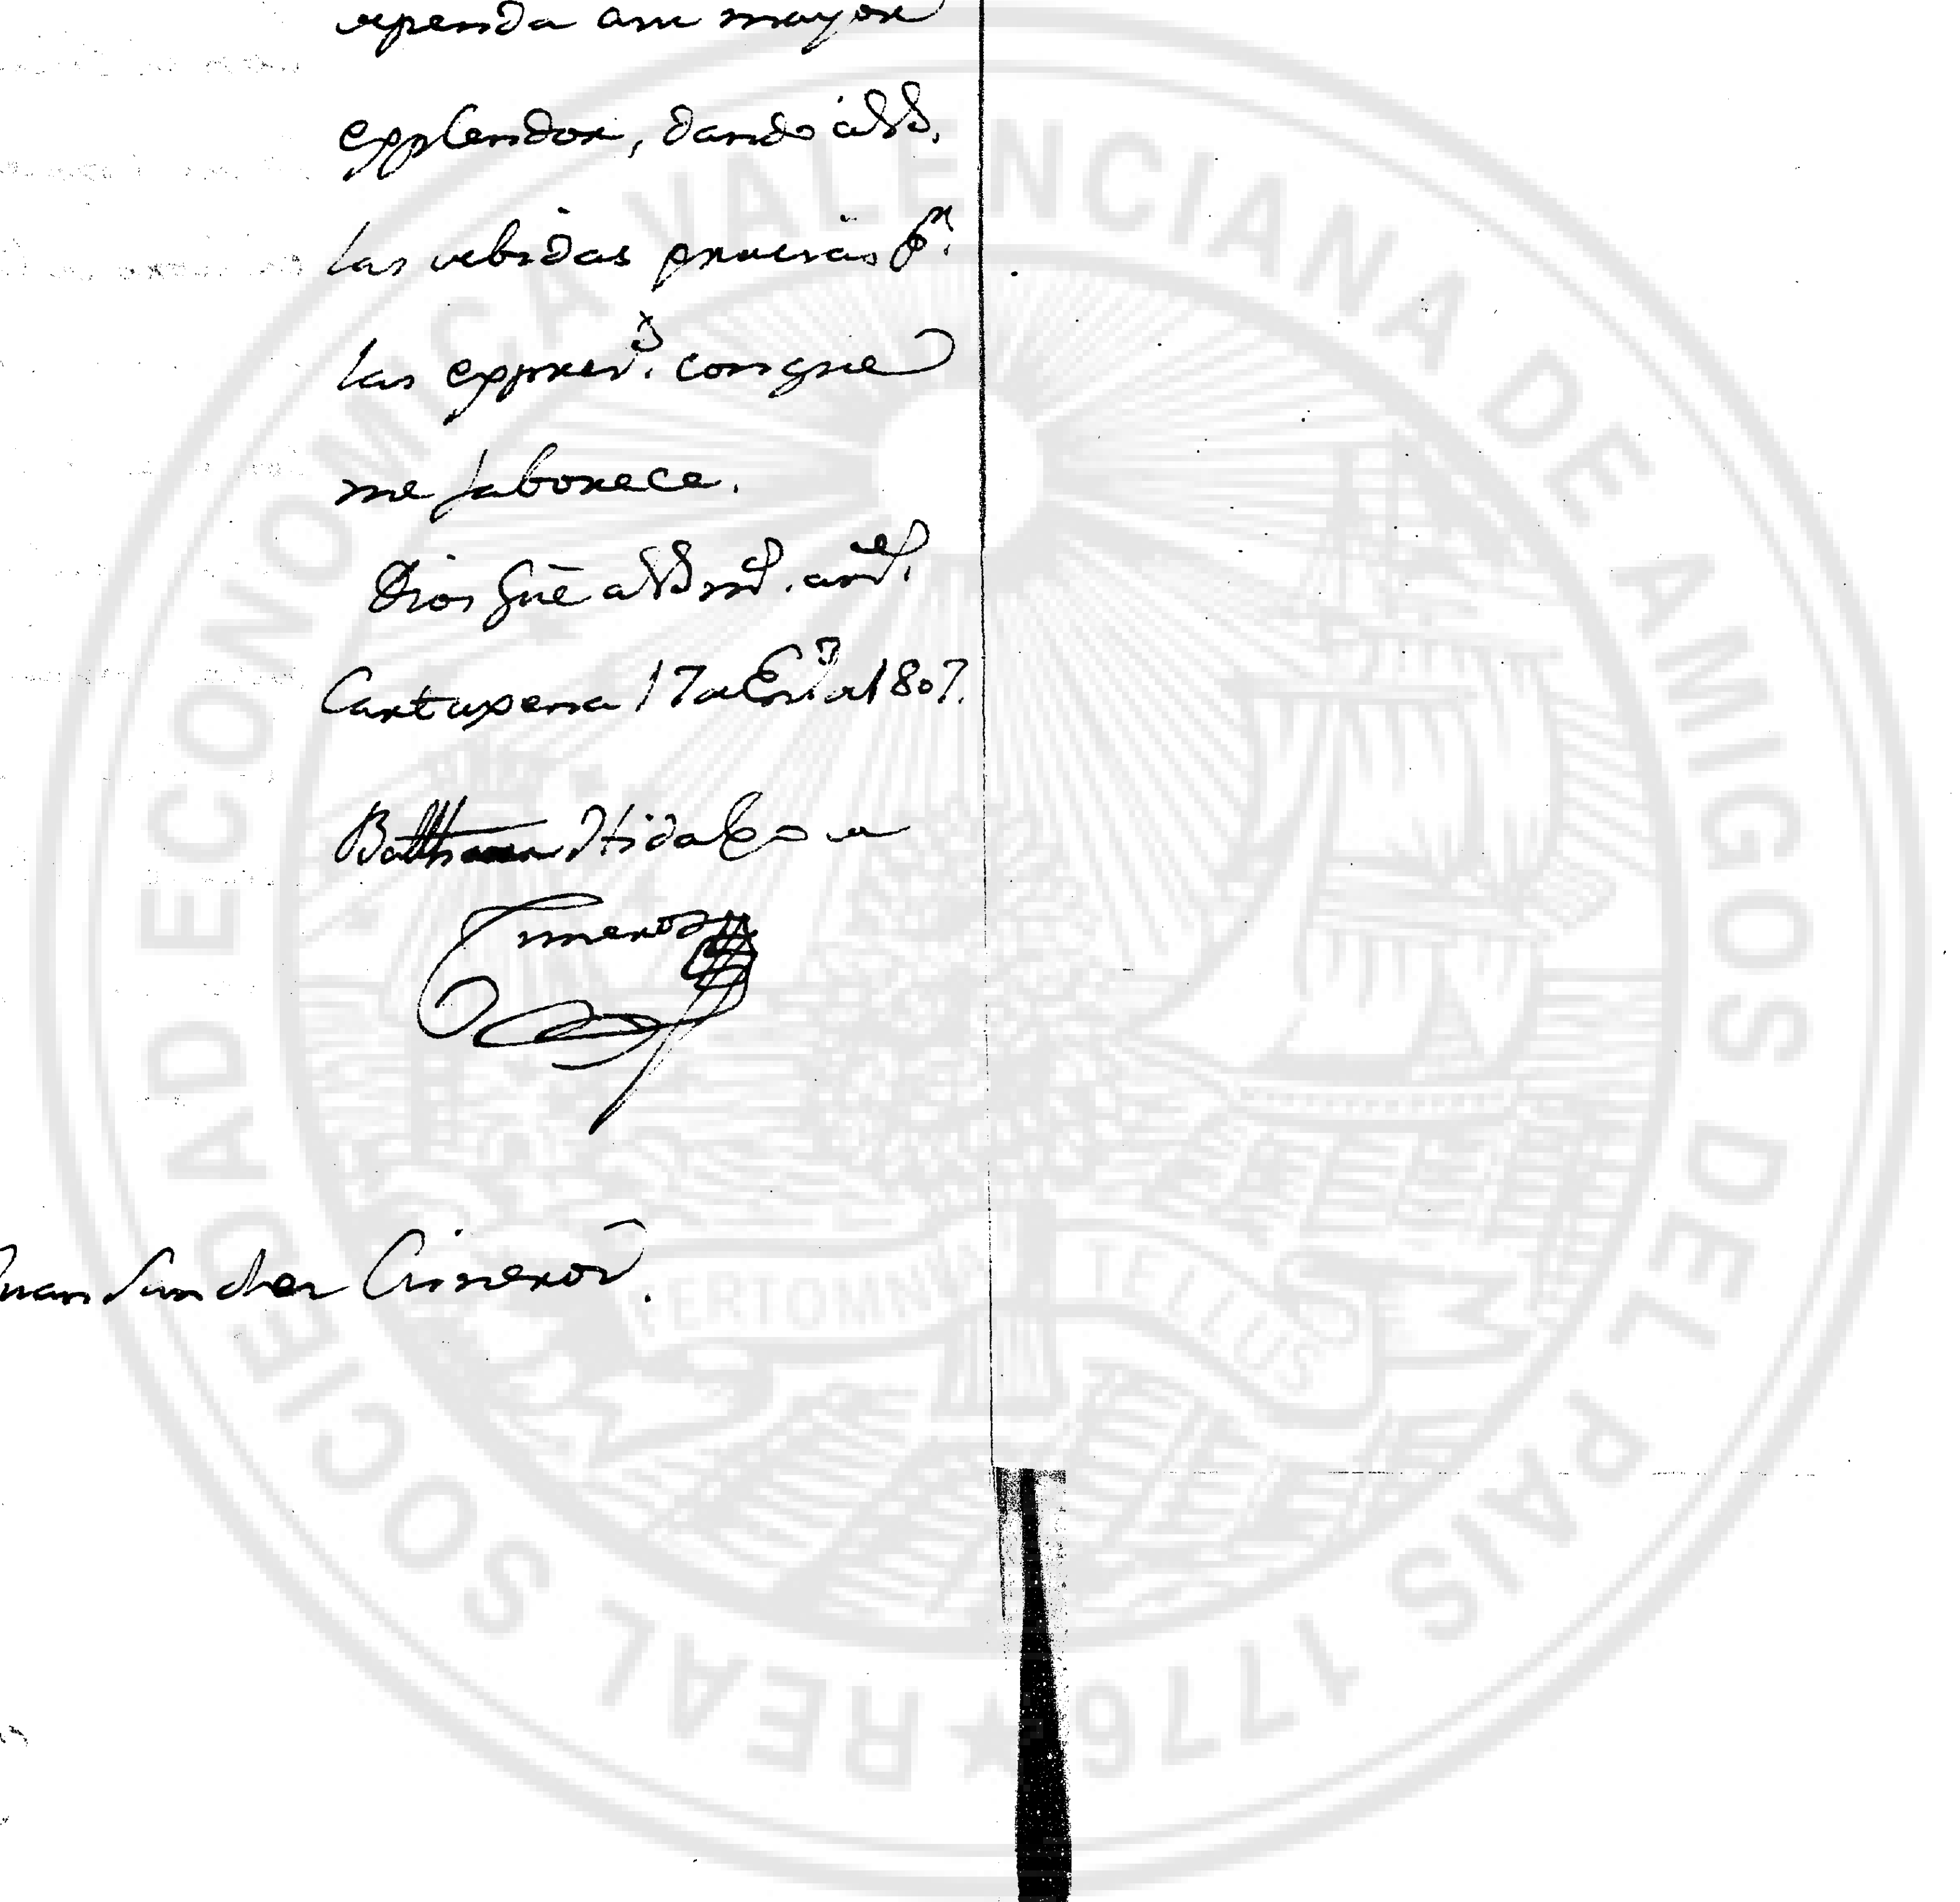 dependa a su mayor
explendor, dando a VS.
las debidas gracias pr.
las expres.s con que
me faborece.
Dios gue a VS ms. as.
Cartaxena 17 de En.o de 1807.
Balthasar Hidalgo de
Cisneros
Juan Sanchez Cisneros.
REAL SOCIEDAD ECONOMICA VALENCIANA DE AMIGOS DEL PAIS 1776